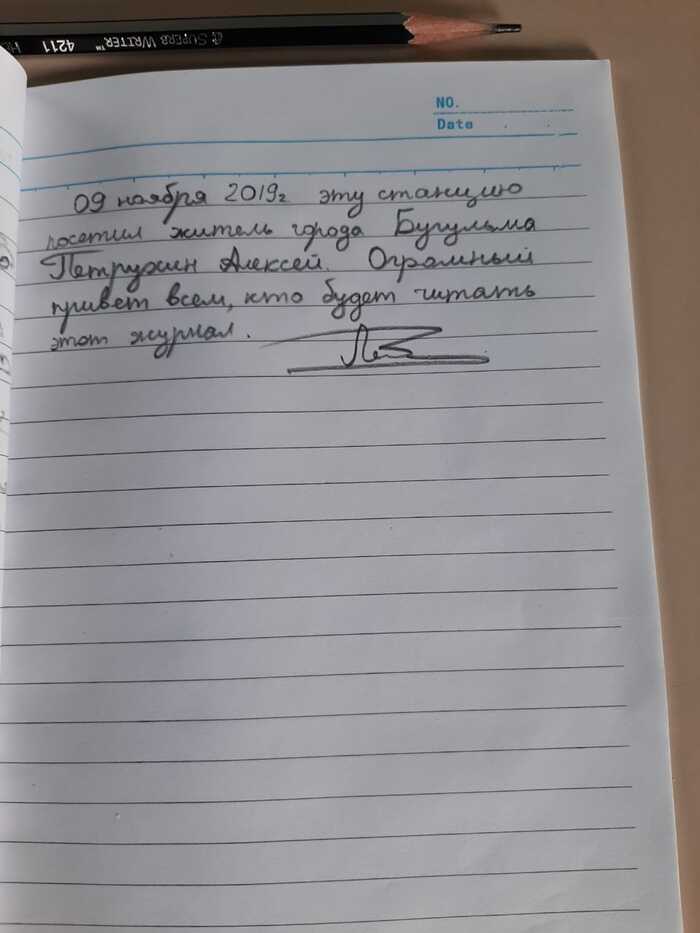 4211 SUPERB WRITER™
NO.
Date
09 ноября 2019г эту станцию
посетил житель города Бугульма
Петрухин Алексей. Огромный
привет всем, кто будет читать
этот журнал.